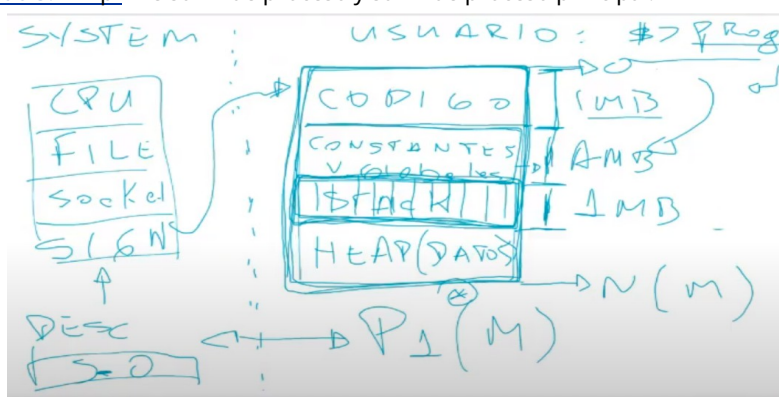 SYSTEM
USUARIO: $> PROG
CPU
FILE
Socket
SIGN
DESC
S-O
CODIGO
CONSTANTES
V Globales
STACK
HEAP(DATOS)
0
1MB
AMB
1MB
N(M)
P1(M)